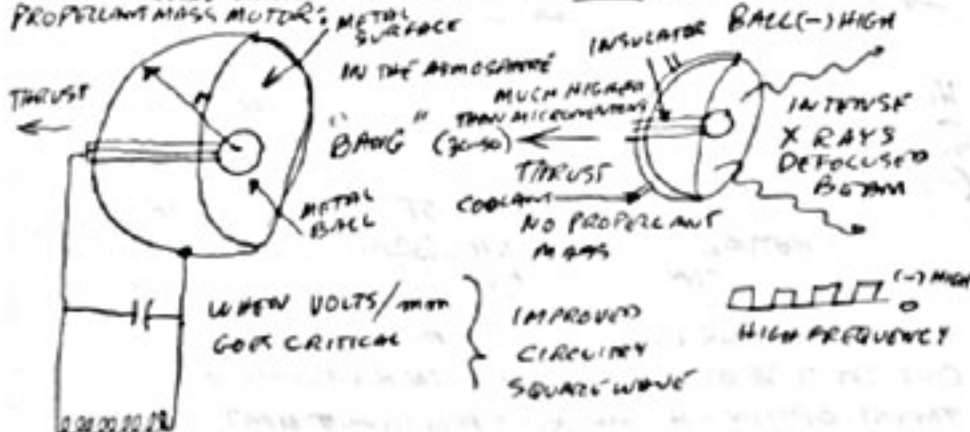 PROPELLANT MASS MOTOR:
METAL
SURFACE
THRUST
IN THE ATMOSPHERE
"BANG" (30-50)
METAL
BALL
WHEN VOLTS/mm
GOES CRITICAL
INSULATOR BALL (-) HIGH
MUCH HIGHER
THAN MICRONEWTONS
THRUST
COOLANT
NO PROPELLANT
MASS
INTENSE
X RAYS
DEFOCUSED
BEAM
IMPROVED
CIRCUITRY
SQUARE WAVE
(-) HIGH
0
HIGH FREQUENCY